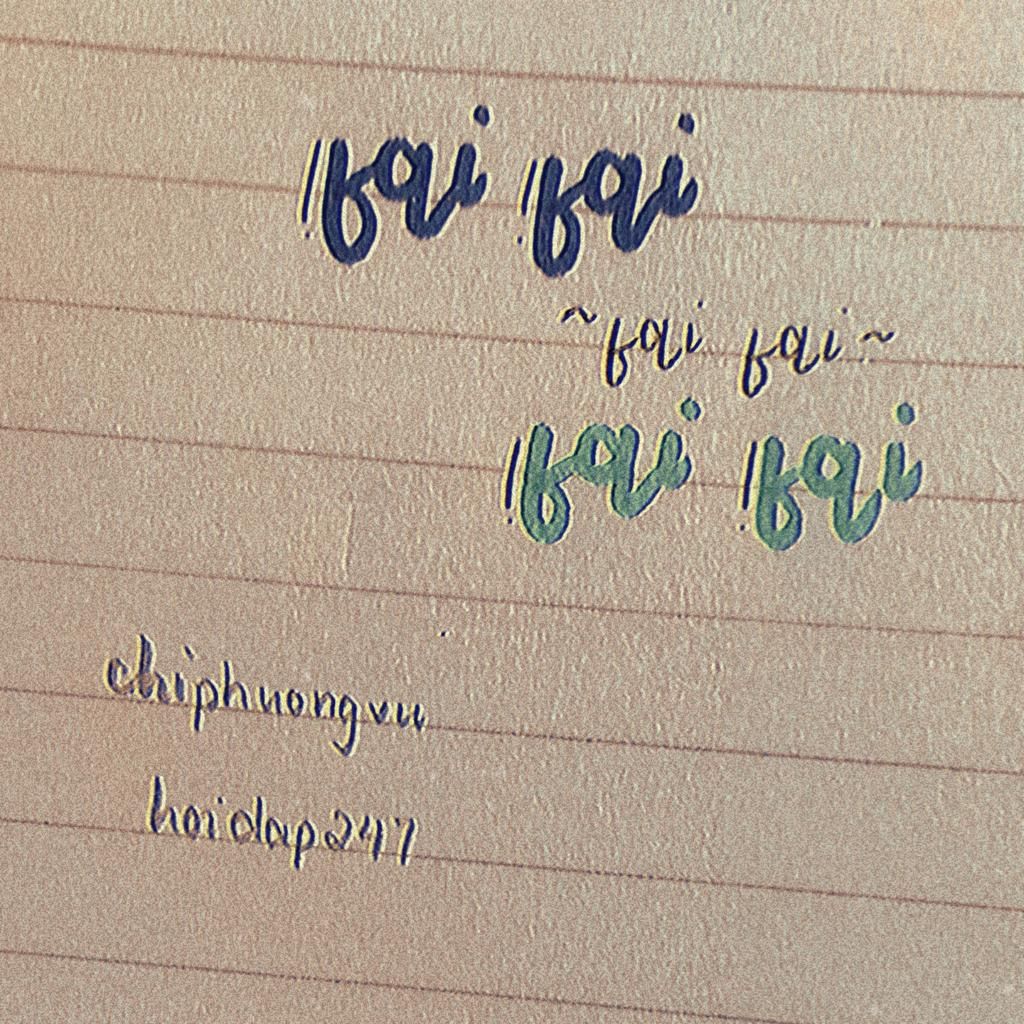 fai fai
~fai fai~
fai fai
chiphuongvu
hoidap247